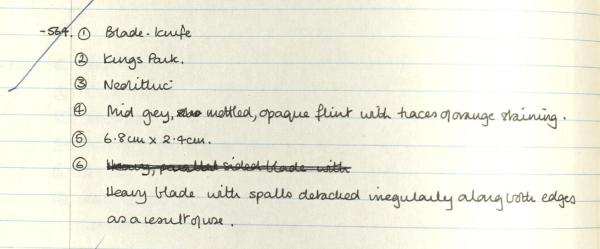 -564. ① Blade-knife
② Kings Park.
③ Neolithic
④ Mid grey, mottled, opaque flint with traces of orange staining.
⑤ 6.8cm x 2.4cm.
⑥ Heavy, parallel sided blade with
Heavy blade with spalls detached irregularly along both edges
as a result of use.